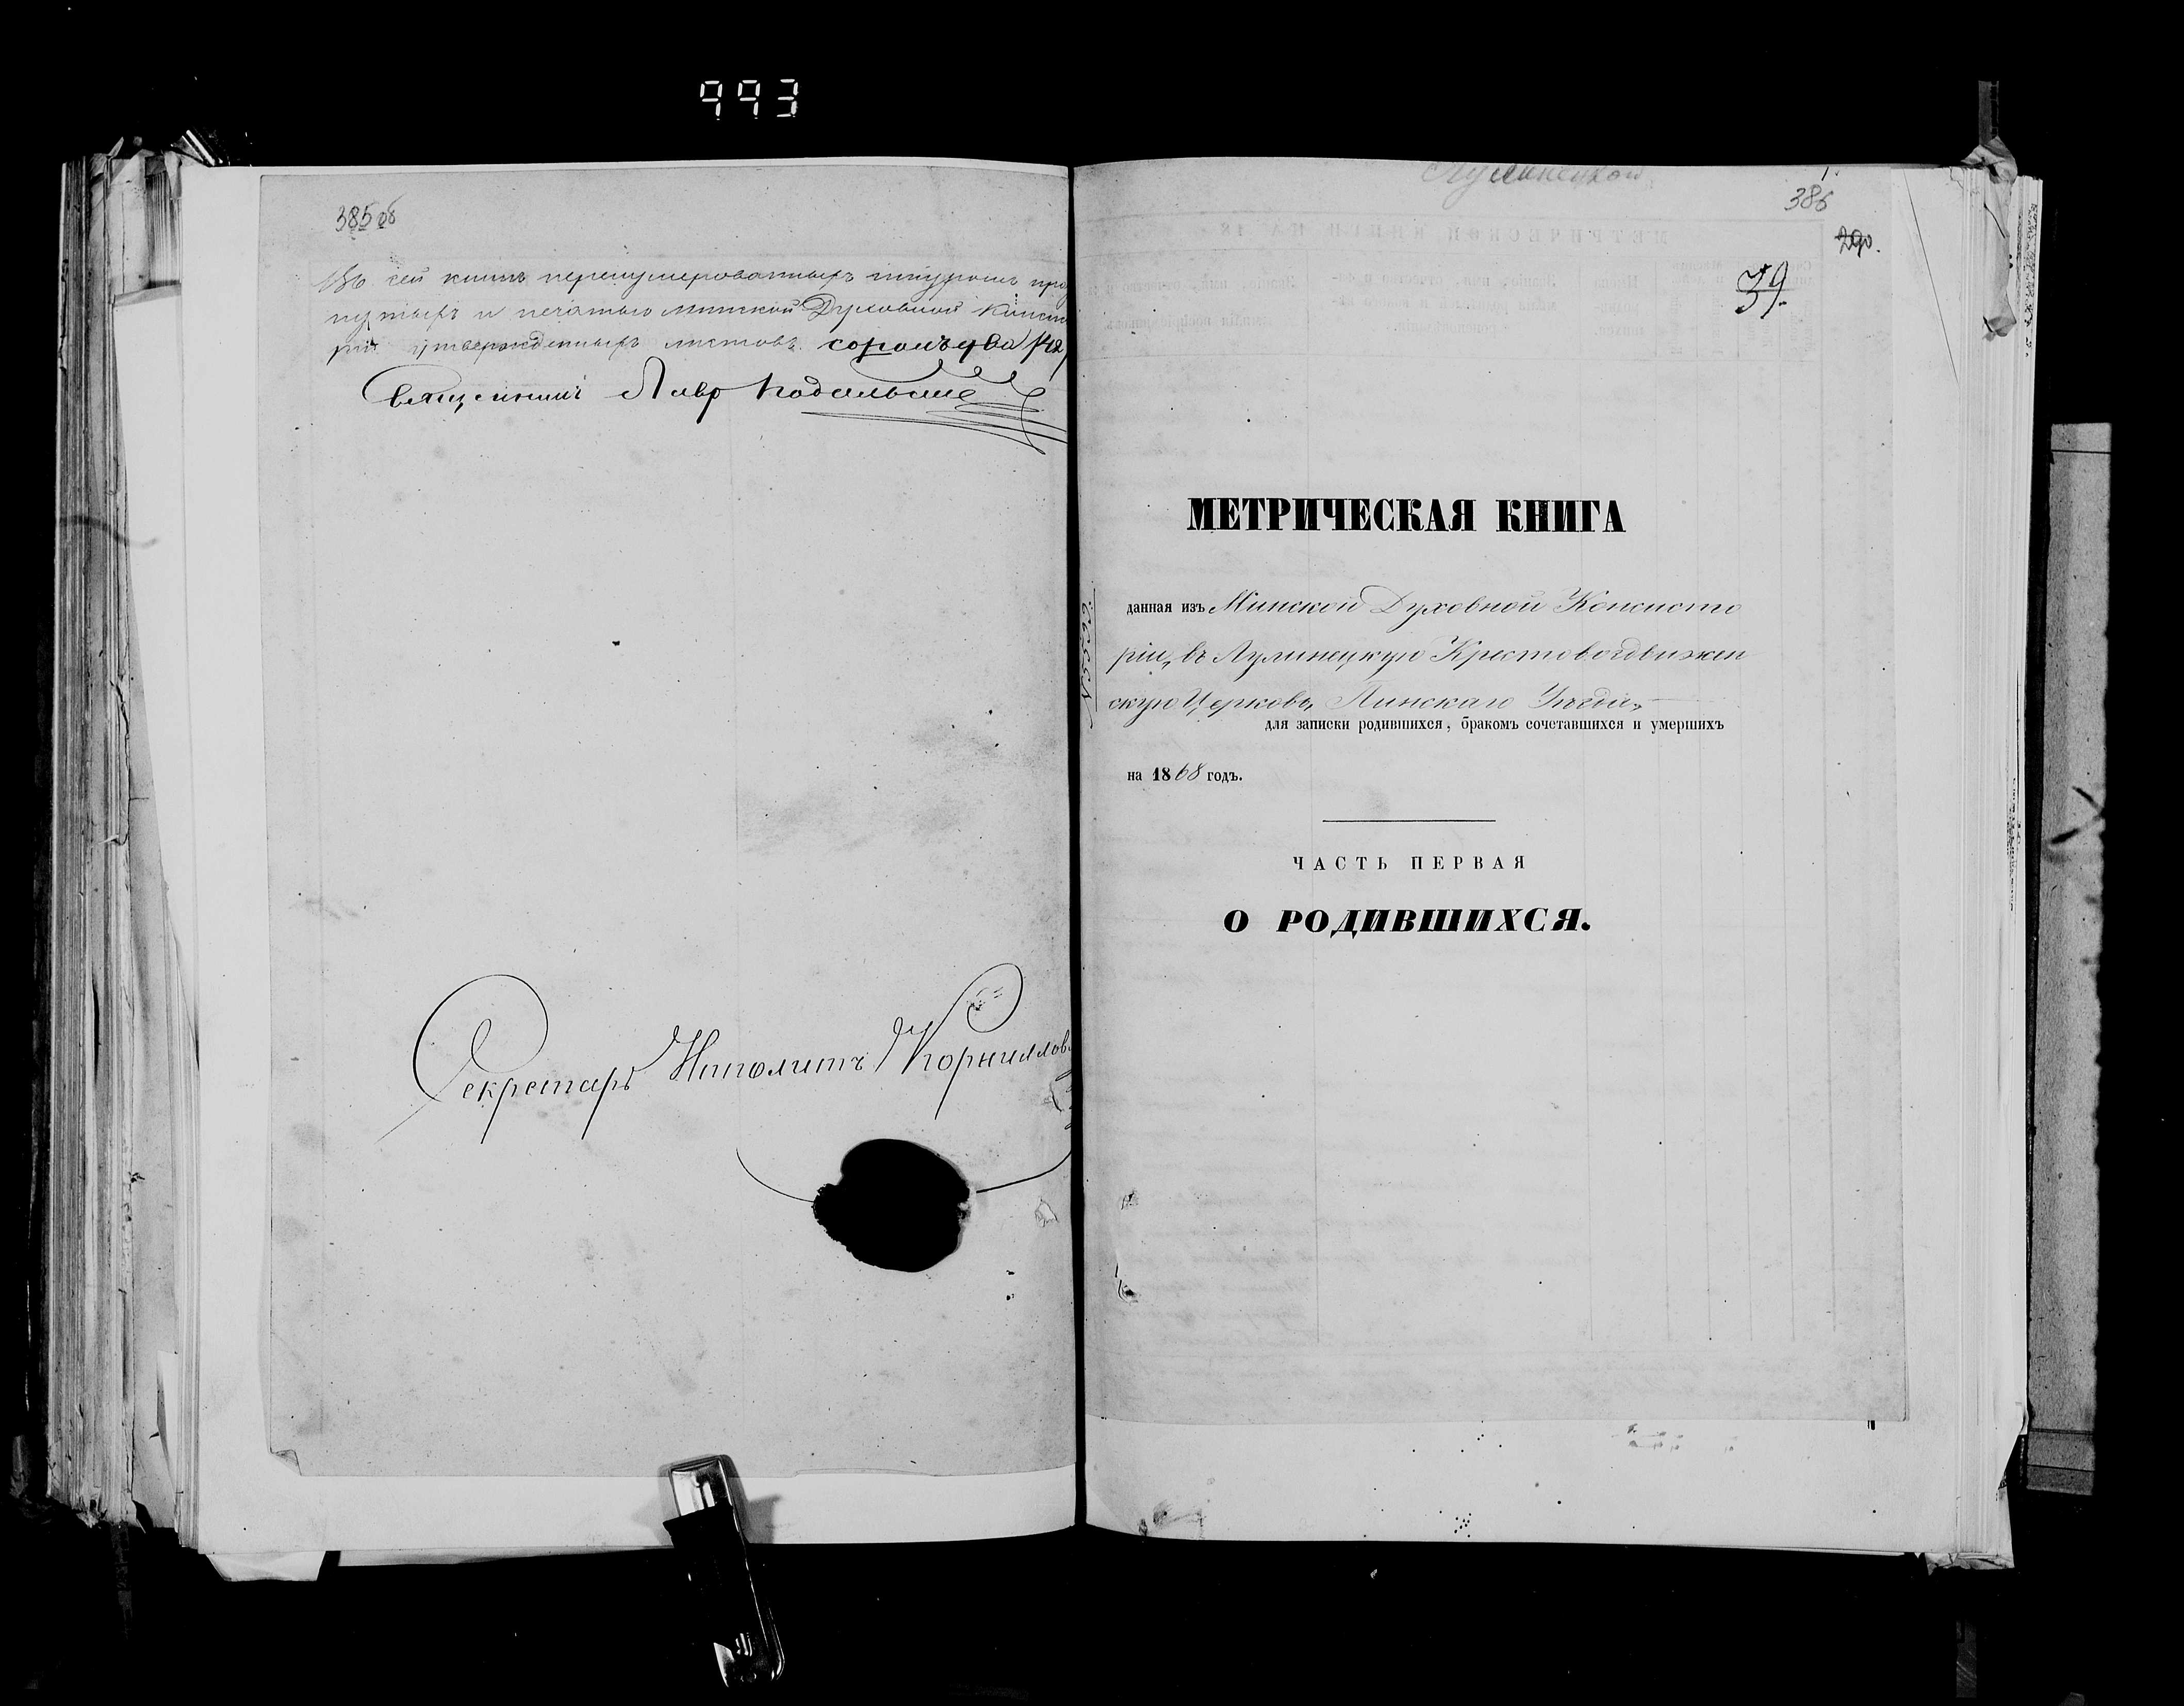 993
385 об
Въ сей книгѣ перенумерованныхъ шнуромъ про
нутыхъ и печатью Минской Духовной Консисто
ріи утвержденныхъ листовъ сорокъ два /42/
Священникъ Лавр
Секретарь Иполитъ Корниллов
Лулинецкой
1.
386
290.
39.
МЕТРИЧЕСКАЯ КНИГА
данная изъ Минской Духовной Консисто
ріи, въ Лулинецкую Крестовоздвижен
скую Церковь, Пинскаго Уѣзда,
для записки родившихся, бракомъ сочетавшихся и умершихъ
на 1868 годъ.
ЧАСТЬ ПЕРВАЯ
О РОДИВШИХСЯ.